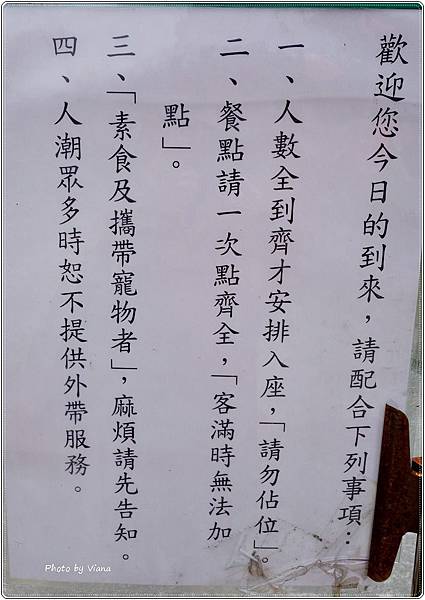 歡迎您今日的到來，請配合下列事項：
一、人數全到齊才安排入座，「請勿佔位」。
二、餐點請一次點齊全，「客滿時無法加
點」。
三、「素食及攜帶寵物者」，麻煩請先告知。
四、人潮眾多時恕不提供外帶服務。
Photo by Viana